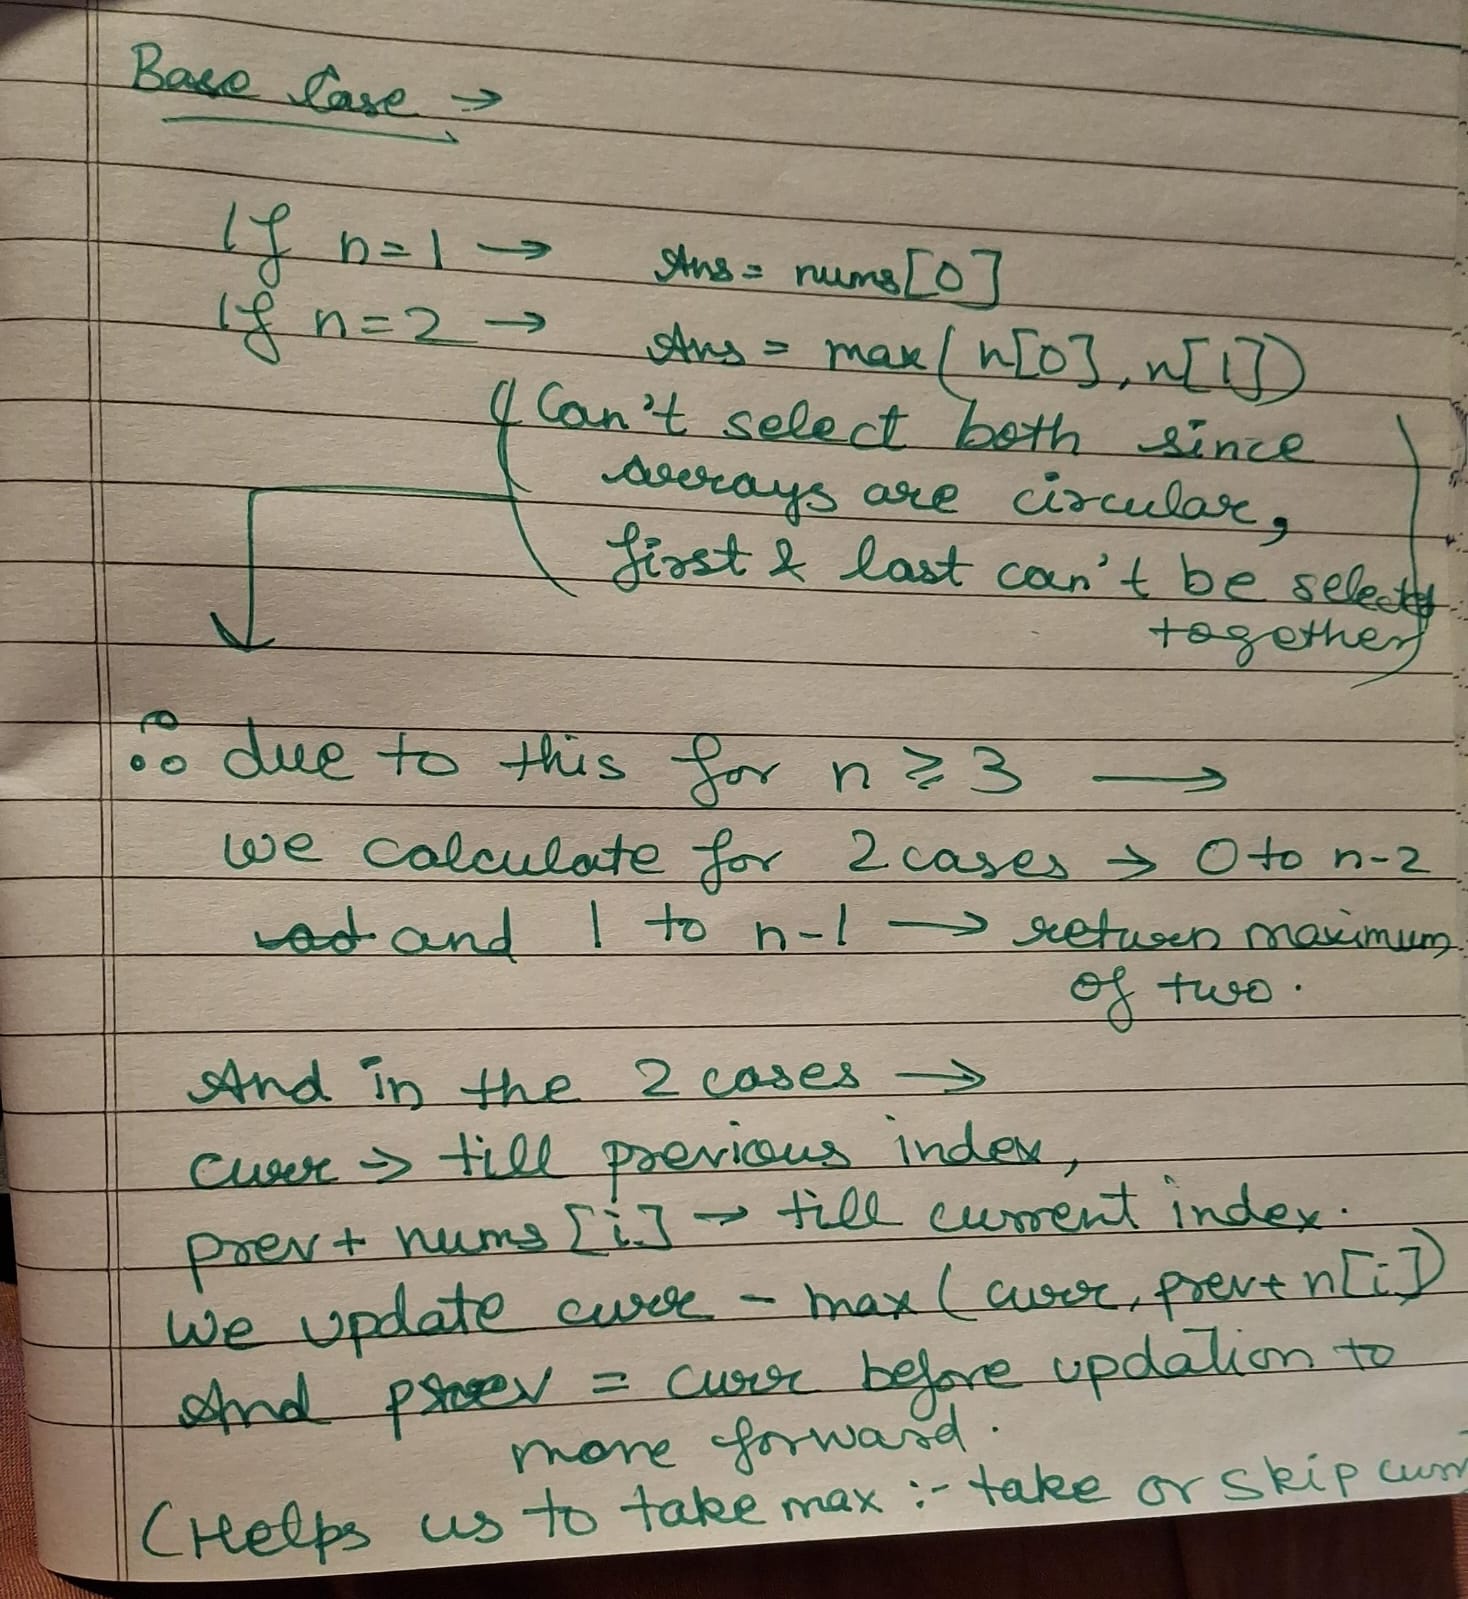 Base Case →
If n=1 → Ans = nums[0]
If n=2 → Ans = max(n[0], n[1])
(Can't select both since
arrays are circular,
first & last can't be selected
together)
∴ due to this for n ≥ 3 →
we calculate for 2 cases → 0 to n-2
and 1 to n-1 → return maximum
of two.
And in the 2 cases →
curr → till previous index,
prev + nums[i] → till current index.
We update curr - max(curr, prev+n[i])
And prev = curr before updation to
move forward.
(Helps us to take max :- take or skip curr